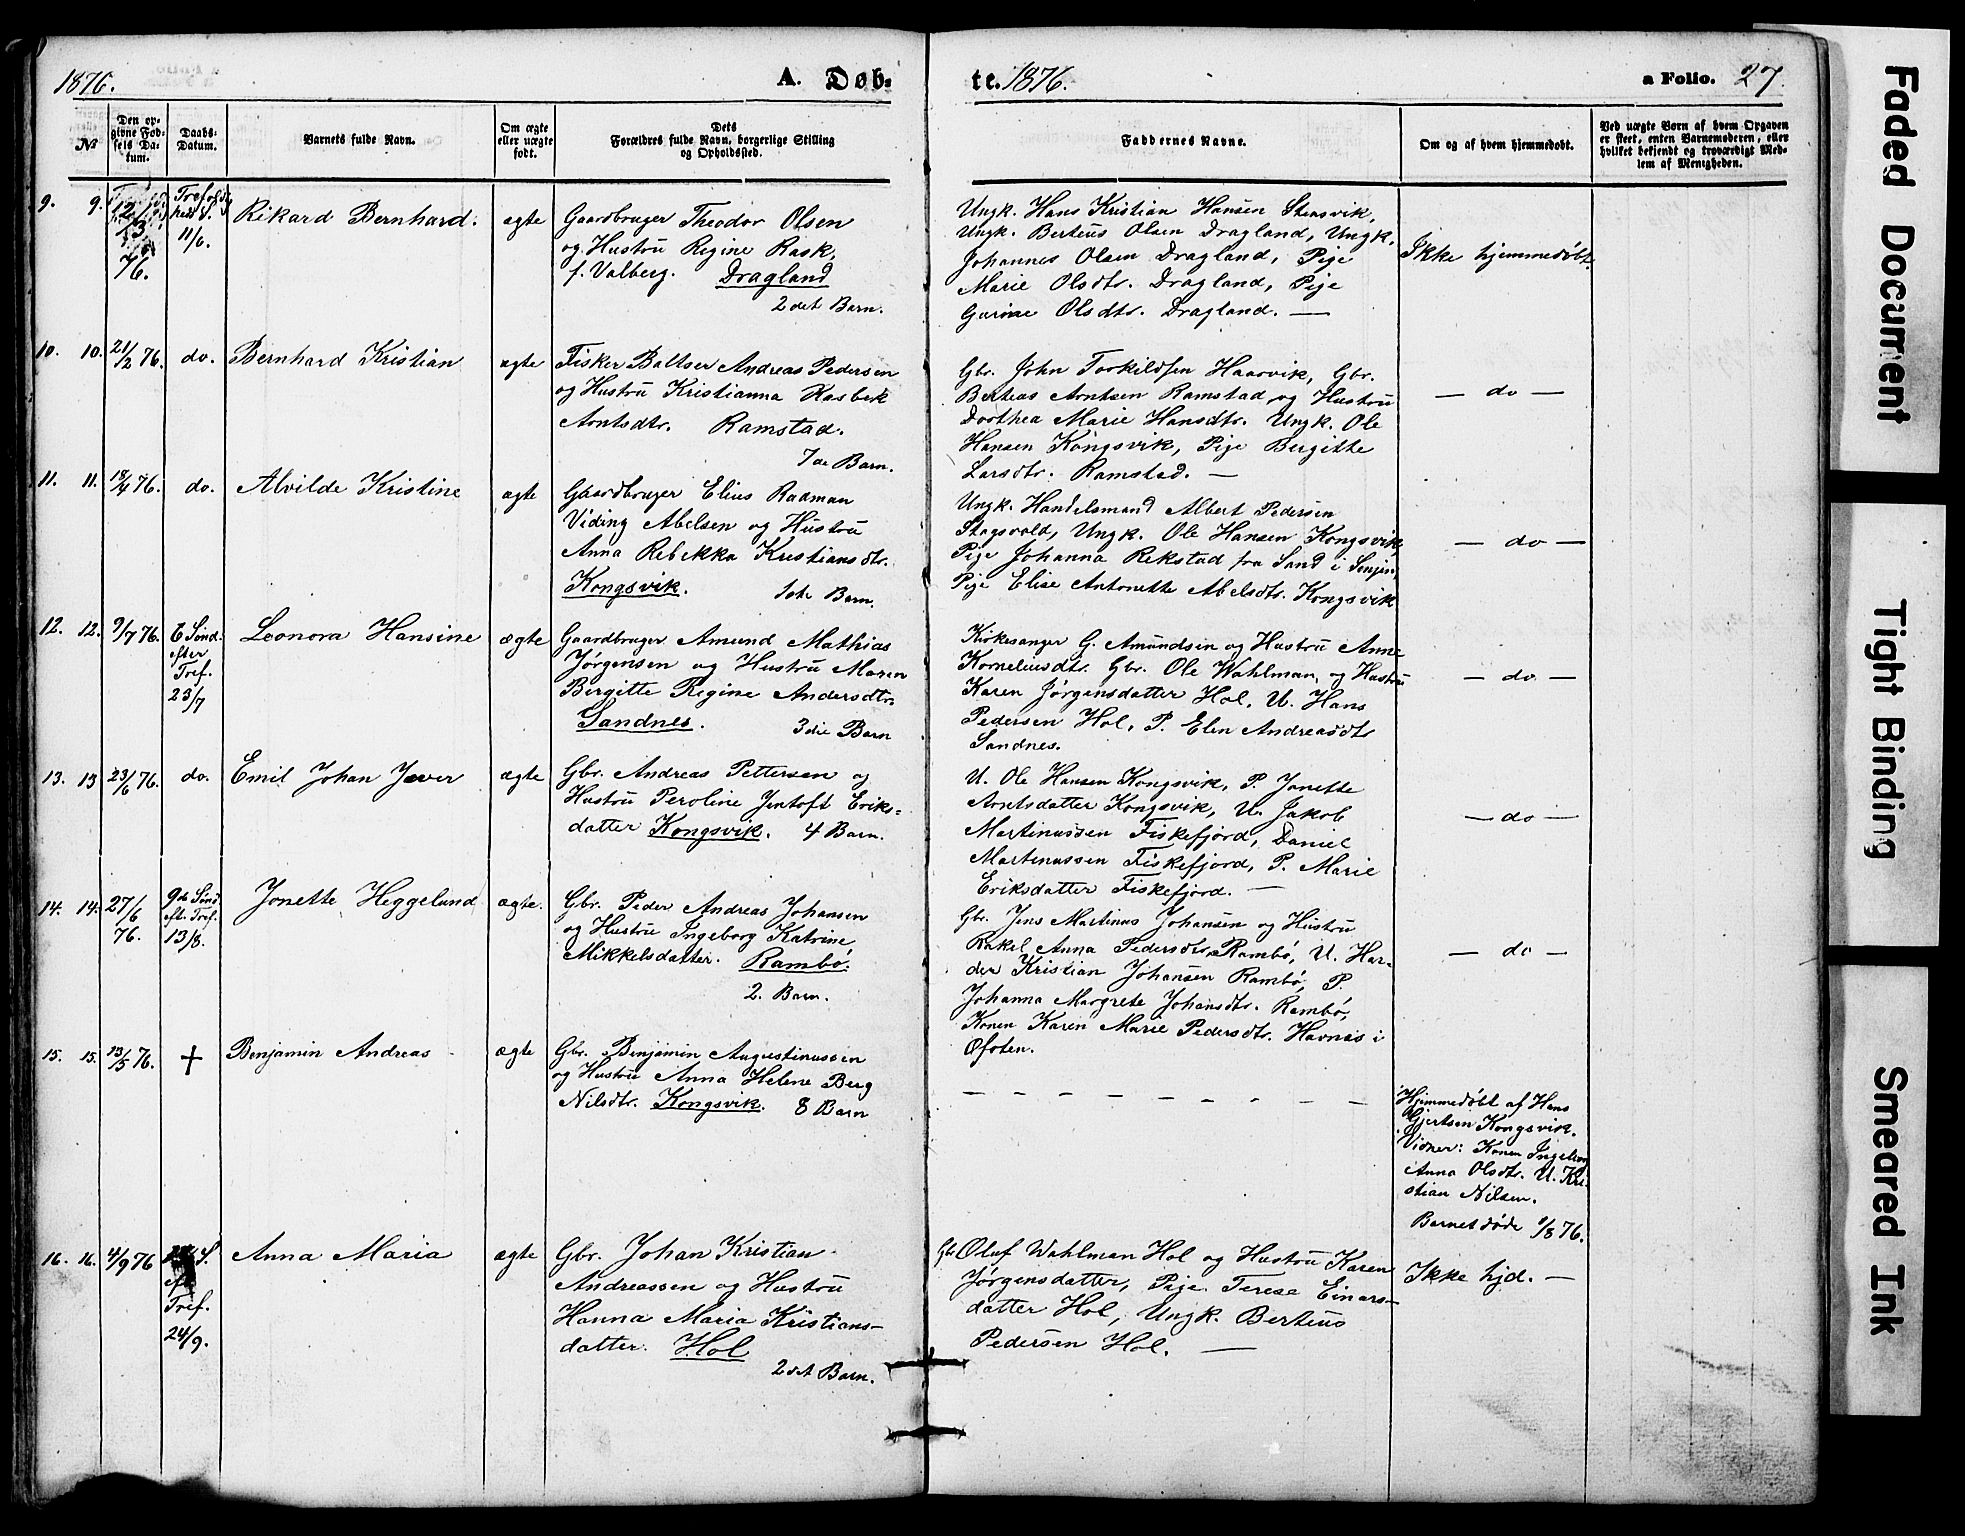 1876.
A. Døb-
te. 1876.
a Folio. 27.
№
Den op-
givne Fød-
sels Da-
tum.
Daabs-
Datum.
Barnets fulde Navn.
Om ægte
eller uægte
født.
Dets
Forældres fulde Navn, borgerlige Stilling
og Opholdssted.
Faddernes Navne.
Om og af hvem hjemmedøbt.
Ved uægte Børn af hvem Opgaven
er skeet, enten Barnemoderen, eller
hvilket bekjendt og troværdigt Med-
lem af Menigheden.
9. 9.
76.
11/6.
Rikard Bernhard.
ægte
Gaardbruger Theodor Olsen
og Hustru Regine Rask,
f. Valberg. Dragland
2det Barn.
Ungk. Hans Kristian Hansen Stensvik,
Ungk. Berteus Olsen Dragland, Ungk.
Johannes Olsen Dragland, Pige
Marie Olsdtr. Dragland, Pige
Gurine Olsdtr. Dragland. —
Ikke hjemmedøbt.
10. 10. 21/2 76. do. Bernhard Kristian
ægte
Fisker Baltser Andreas Pedersen
og Hustru Kristianna Hasbek
Arntsdtr. Ramstad.
7de Barn.
Gbr. John Torkildsen Haarvik, Gbr.
Berteas Arntsen Ramstad og Hustru
Dorthea Marie Hansdtr. Ungk. Ole
Hansen Kongsvik, Pige Bergitte
Larsdtr. Ramstad. —
— do —
11. 11. 18/4 76. do. Alvilde Kristine
ægte
Gaardbruger Elius Radman
Viding Abelsen og Hustru
Anna Rebekka Kristiansdtr.
Kongsvik. 1ste Barn.
Ungk. Handelsmand Albert Pedersen
Stagsvold, Ungk. Ole Hansen Kongsvik,
Pige Johanna Rekstad fra Sand i Senjen,
Pige Elise Antonette Abelsdtr. Kongsvik
— do —
12. 12. 9/7 76. 6 Sønd.
efter
Tref.
23/7
Leonora Hansine
ægte
Gaardbruger Amund Mathias
Jørgensen og Hustru Maren
Bergitte Regine Andersdtr.
Sandnes. 3die Barn
Kirkesanger G. Amundsen og Hustru Anne
Korneliusdtr. Gbr. Ole Wahlman, og Hustru
Karen Jørgensdatter Hol, U. Hans
Pedersen Hol, P. Elen Andreasdtr
Sandnes.
— do —
13. 13 23/6 76. do. Emil Johan Jæver
ægte
Gbr. Andreas Pettersen og
Hustru Peroline Jentoft Eriks-
datter Kongsvik. 4 Barn.
U. Ole Hansen Kongsvik, P. Jonette
Arntsdatter Kongsvik, U. Jakob
Martinussen Fiskefjord, Daniel
Martinussen Fiskefjord, P. Marie
Eriksdatter Fiskefjord. —
— do —
14. 14. 27/6
76.
9de Sønd
eft. Tref.
13/8.
Jonette Heggelund
ægte.
Gbr. Peder Andreas Johansen
og Hustru Ingeborg Katrine,
Mikkelsdatter. Rambø.
2. Barn.
Gbr. Jens Martinus Johansen og Hustru
Rakel Anna Pedersdtr. Rambø, U. Har-
der Kristian Johansen Rambø, P.
Johanna Margrete Johansdtr. Rambø,
Konen Karen Marie Pedersdtr. Havnæs i
Ofoten.
— do —
15. 15. 13/5 76. + Benjamin Andreas
ægte
Gbr. Benjamin Augustinussen
og Hustru Anna Helene Berg
Nilsdtr. Kongsvik. 8 Barn
— — — — — — — — —
Hjemmedøbt af Hans
Gjertsen Kongsvik.
Vidner: Konen Ingeborg
Anna Olsdtr. U. Kri-
stian Nilsen.
Barnet døde 1/8 76.
16. 16. 4/9 76
S.
eft
Tref.
24/9.
Anna Maria
ægte
Gbr. Johan Kristian
Andreassen og Hustru
Hanna Maria Kristians-
datter. Hol
2det Barn.
Gbr Oluf Wahlman Hol og Hustru Karen
Jørgensdatter, Pige Terese Einars-
datter Hol, Ungk. Berteus
Pedersen Hol. —
Ikke hjd. —
Faded Document
Tight Binding
Smeared Ink